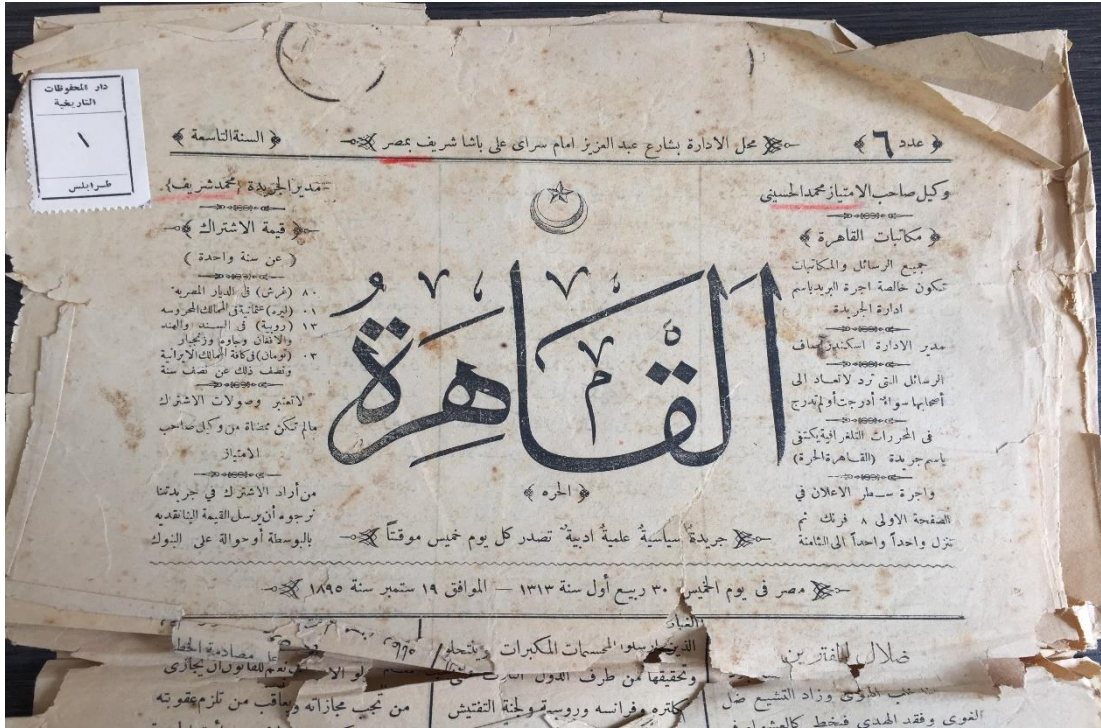 دار المحفوظات
التاريخية
١
طرابلس
عدد ٦
محل الادارة بشارع عبد العزيز امام سراى على باشا شريف بمصر
السنة التاسعة
وكيل صاحب الامتياز محمد الحسينى
مكاتبات القاهرة
جميع الرسائل والمكاتبات
تكون خالصة اجرة البريد باسم
ادارة الجريدة
مدير الادارة اسكندر
الرسائل التى ترد لا تعاد الى
أصحابها سواء أدرجت أو لم تدرج
فى المحررات التلغرافية يكتفى
باسم جريدة (القاهرة الحرة)
واجرة سطر الاعلان في
الصفحة الاولى ٨ فرنك ثم
تنزل واحداً واحداً الى الثامنة
القاهرة
الحره
جريدة سياسية علمية ادبية تصدر كل يوم خميس موقتاً
مدير الجريدة (محمد شريف)
قيمة الاشتراك
(عن سنة واحدة)
٨٠ (غرش) فى الديار المصريه
٠١ (ليره) عثمانية فى الممالك المحروسه
١٣ (روبية) فى السند والهند
والافغان وجاوه وزنجبار
٠٣ (تومان) فى كافة الممالك الايرانية
ونصف ذلك عن نصف سنة
لا تعتبر وصولات الاشتراك
مالم تكن ممضاة من وكيل صاحب
الامتياز
من أراد الاشتراك في جريدتنا
نرجوه أن يرسل القيمة الينا نقديه
بالبوسطة أو حوالة على البنوك
مصر فى يوم الخميس ٣٠ ربيع أول سنة ١٣١٣ — الموافق ١٩ ستمبر سنة ١٨٩٥
ضلال المفترين
وزاد التشيع ضل
القوى وفقد الهدى فخبط
المكبرات
وتحقيقها من طرف الدول
وفرانسه وروسية ولجنة التفتيش
مصادمة
من تجب مجازاته ويعاقب من تلزم عقوبته